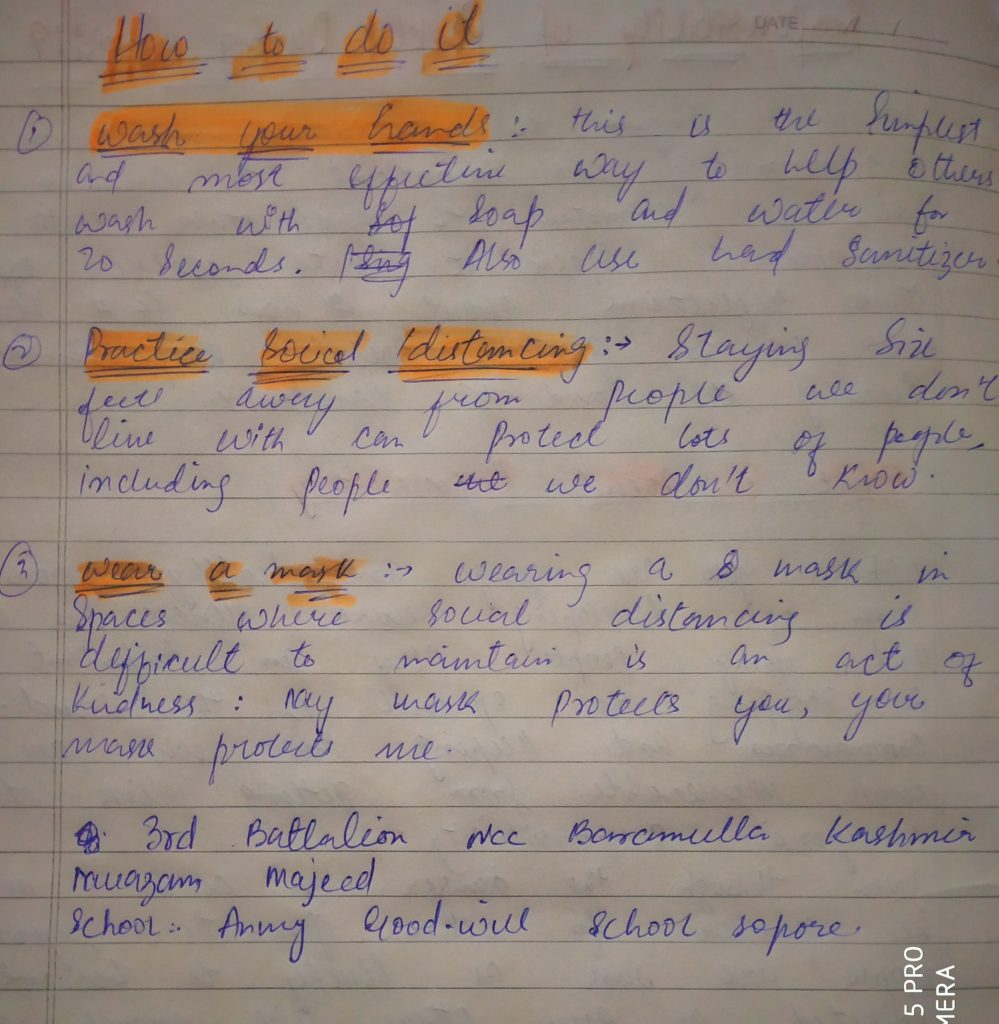 DATE
How to do it
① wash your hands :- this is the Simplest
and most effective way to help others
wash with Soap and water for
20 Seconds. Also use hand Sanitizer
② Practice Social distancing :→ Staying Six
feet away from people we don't
live with can Protect lots of people,
including people we don't know.
③ wear a mask :→ wearing a mask in
Spaces where social distancing is
difficult to maintain is an act of
Kindness : My mask Protects you, your
mask protects me.
3rd Battalion NCC Baramulla Kashmir
Majeed
School:- Army Good-will School Sopore.
5 PRO
MERA